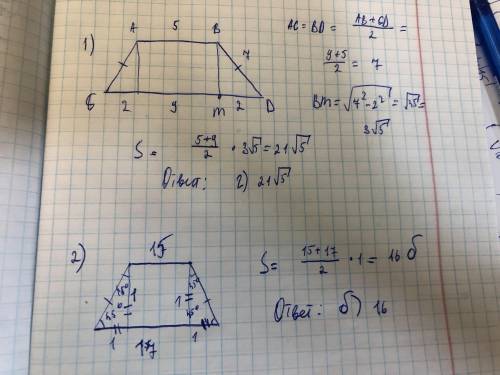 1)
A 5 B
7
C 2 9 M 2 D
AC = BD = (AB+CD)/2 =
(9+5)/2 = 7
BM = √(7²-2²) = √45 =
3√5
S = (5+9)/2 · 3√5 = 21√5
Ответ: 2) 21√5
2)
15
45° 1 1 45°
45° 45°
1 17 1
S = (15+17)/2 · 1 = 16 б
Ответ: б) 16